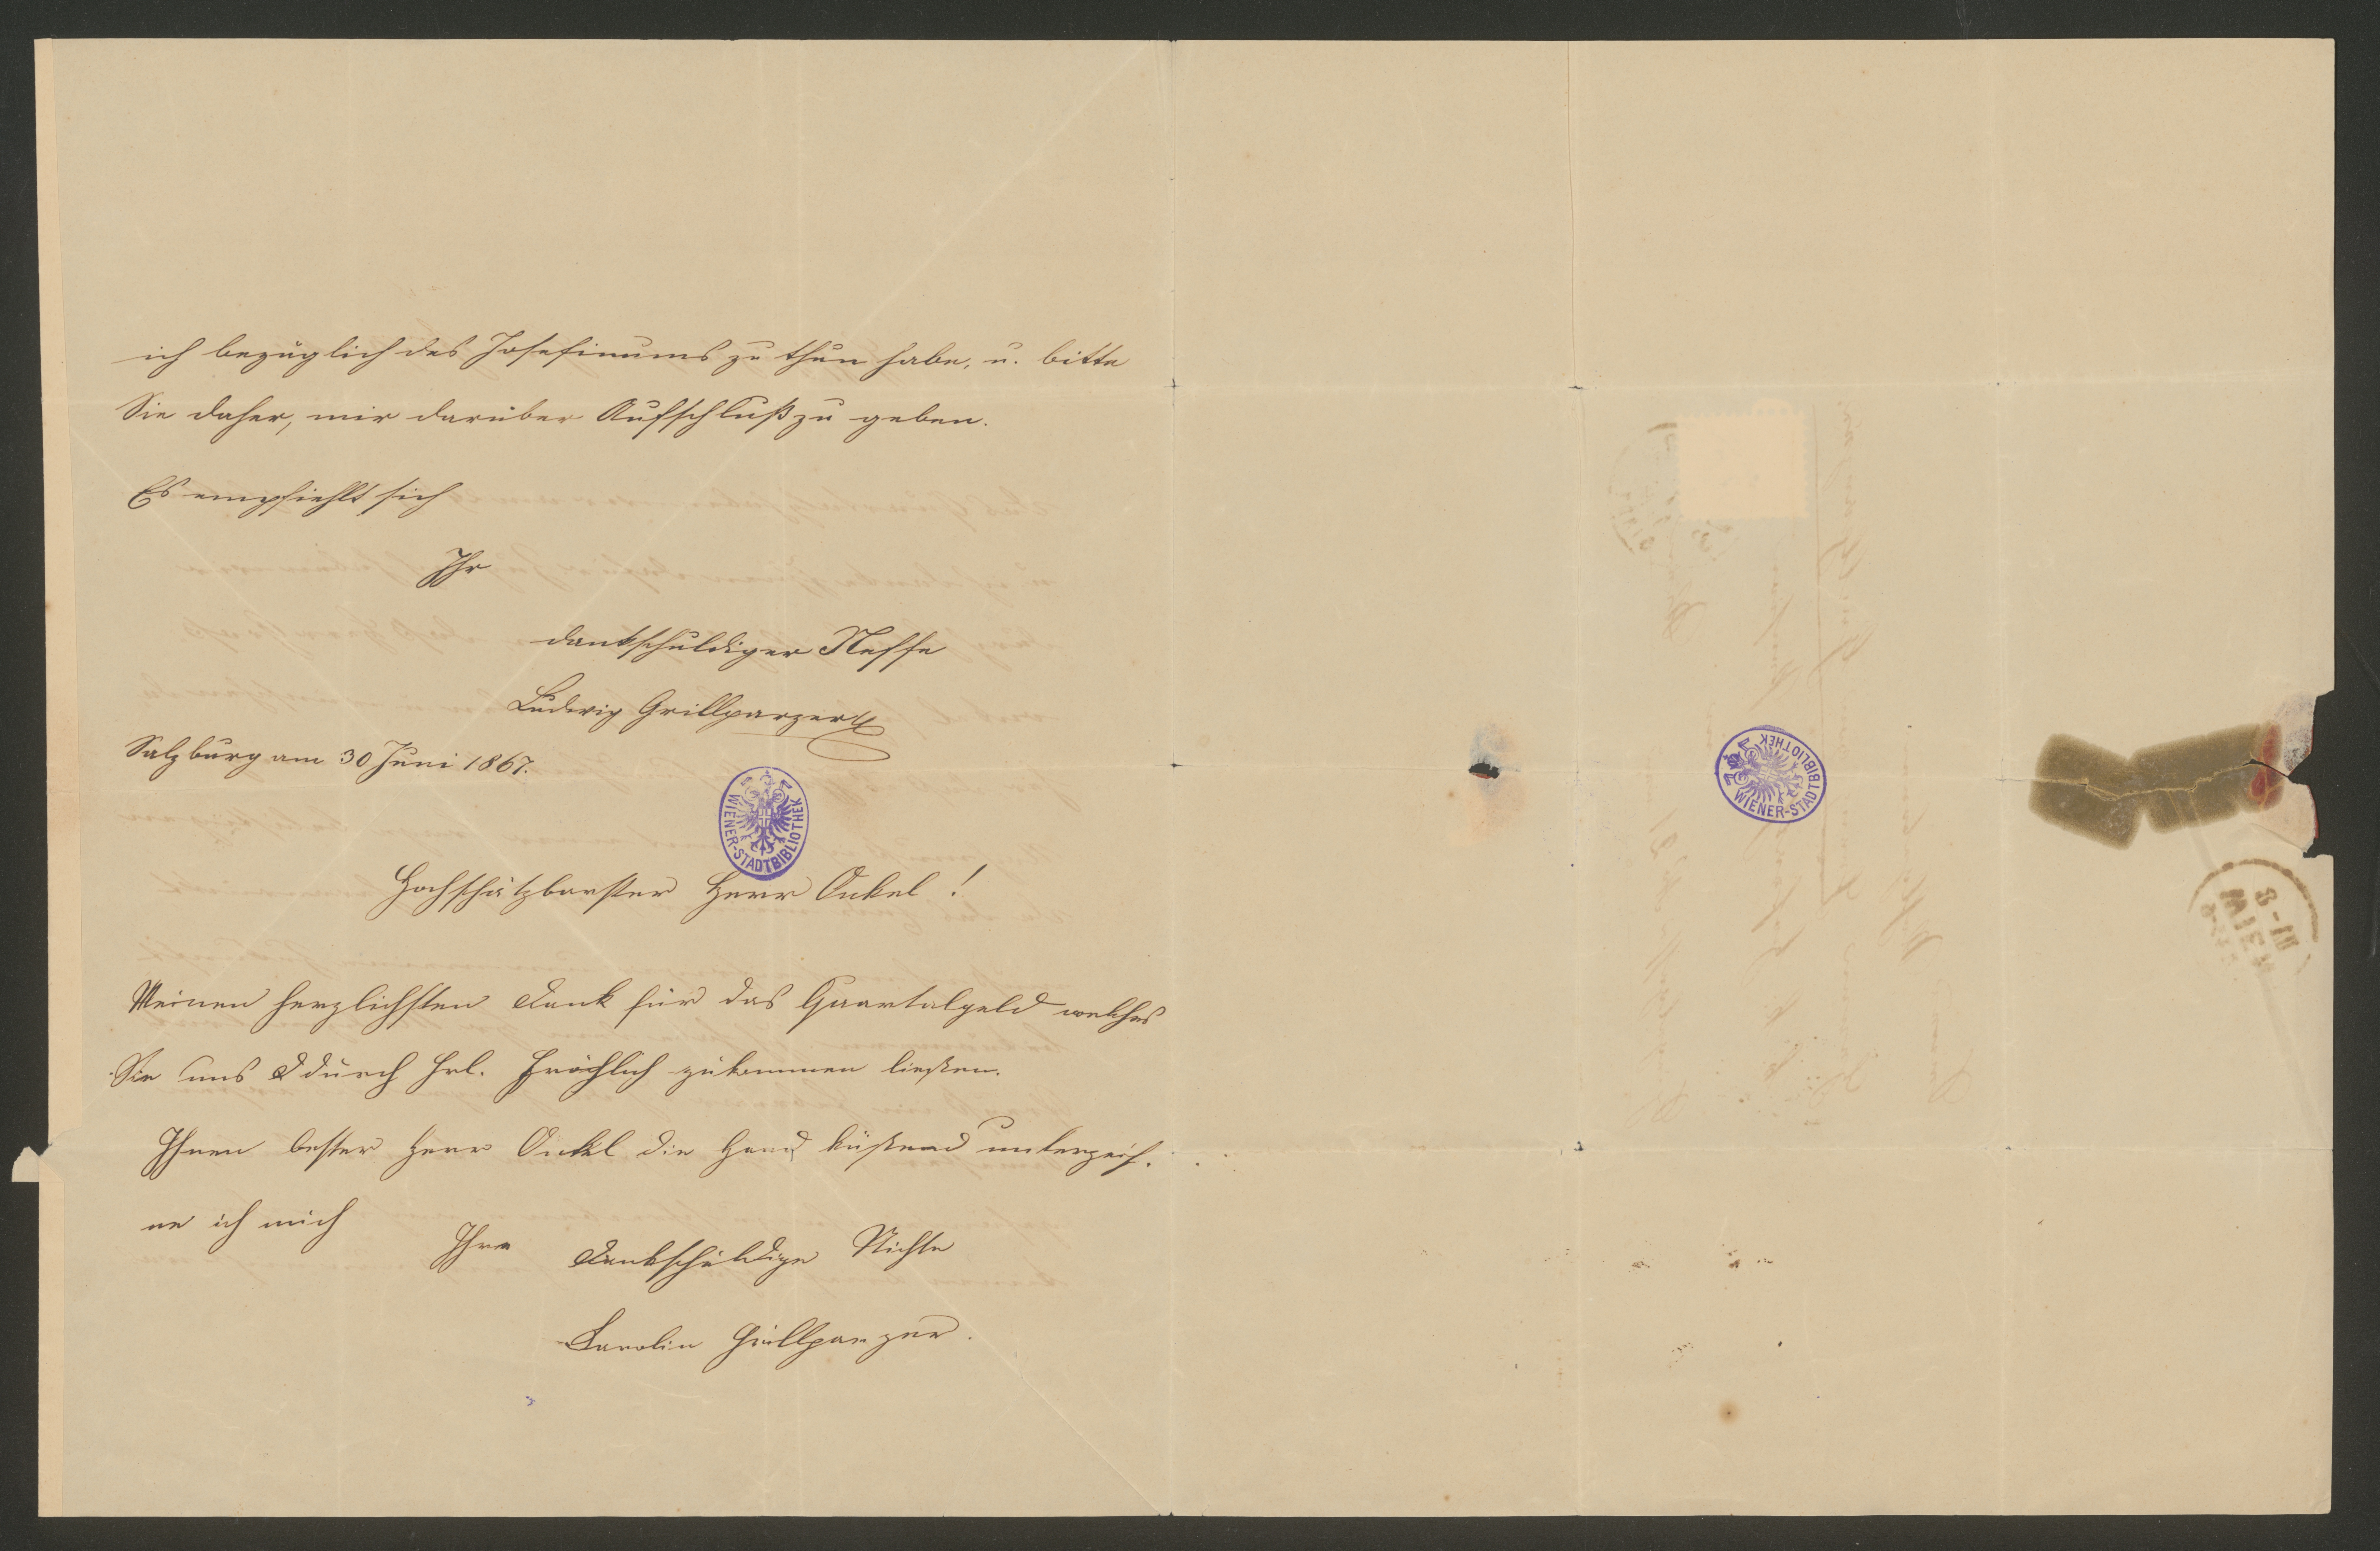 ich bezüglich des Josefinums zu thun habe, u. bitte
Sie daher, mir darüber Aufschluß zu geben.
Es empfiehlt sich
Ihr
dankschuldiger Neffe
Ludwig Grillparzer
Salzburg am 30 Juni 1867.
WIENER-STADTBIBLIOTHEK
Hochschätzbarster Herr Onkel!
Meinen herzlichsten Dank für das Quartalgeld welches
Sie uns durch Frl. Fröhlich zukommen ließen.
Ihnen bester Herr Onkel die Hand küßend unterzeich.
ne ich mich
Ihre dankschuldige Nichte
Karolin Grillparzer.
WIENER-STADTBIBLIOTHEK
WIEN